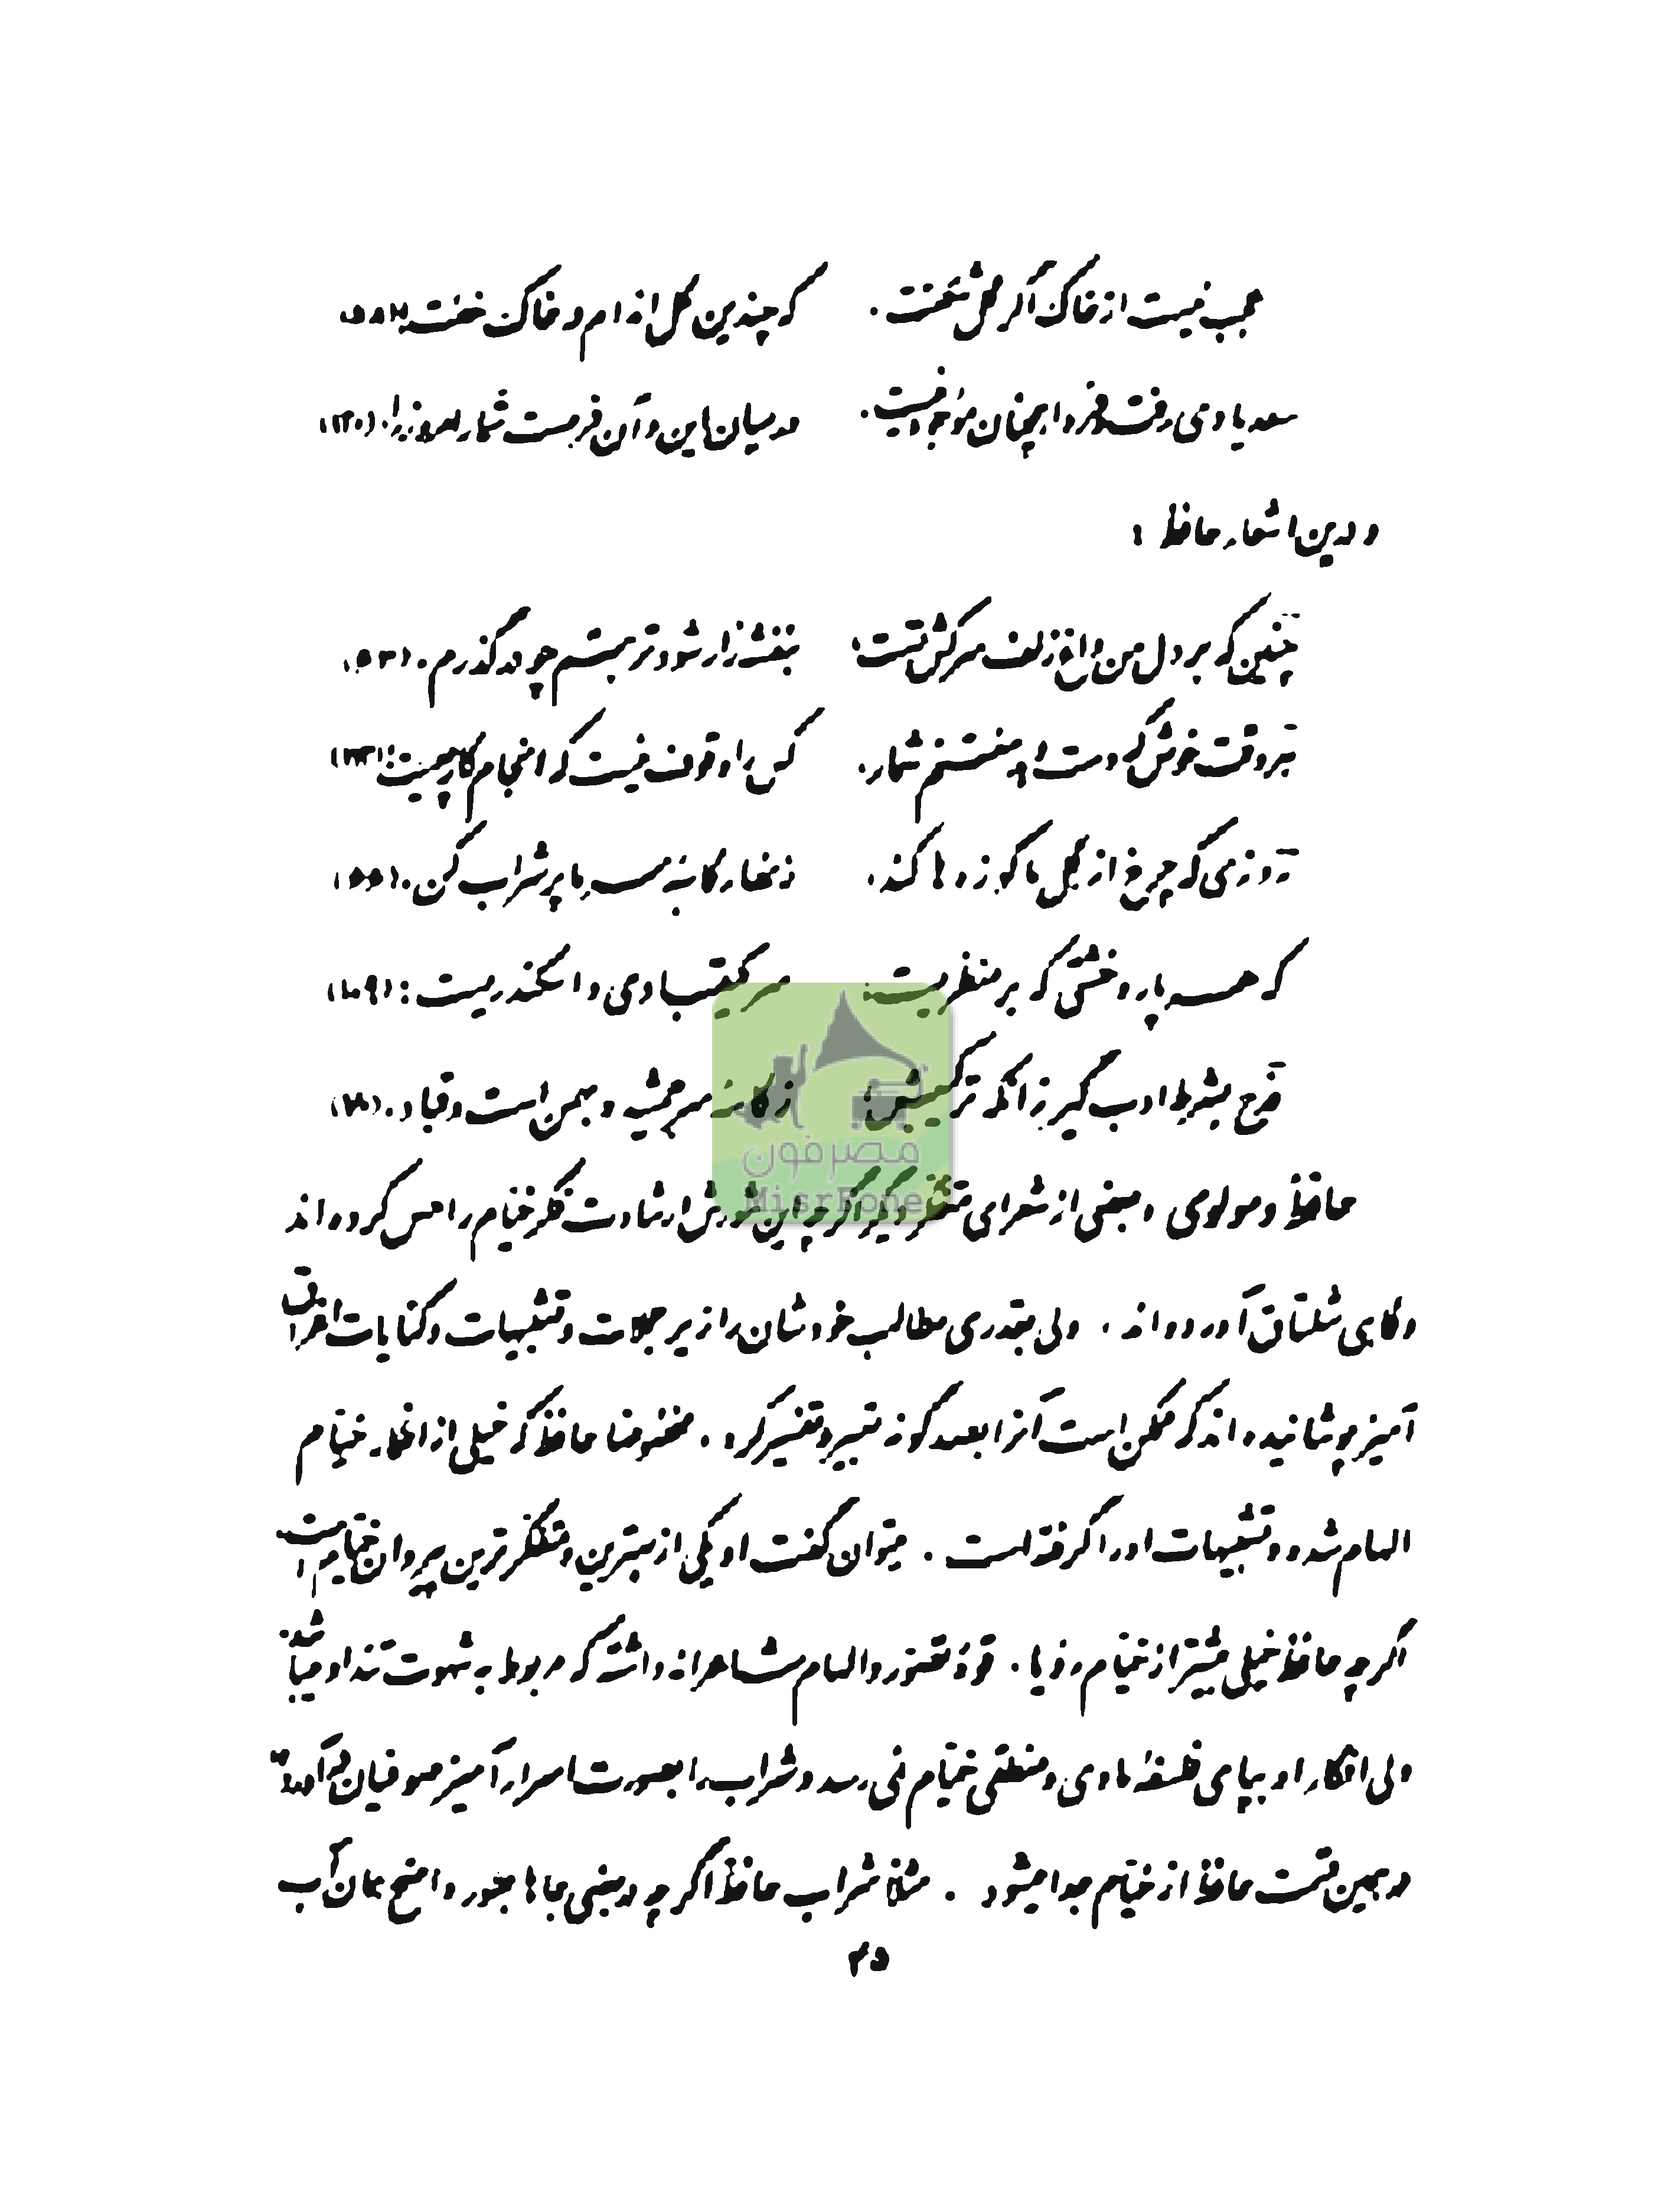 عجب نیست از خاک اگر گل شگفت، که چندین گل اندام در خاک خفت!
سعدیا دی رفت و فردا همچنان موجود نیست، در میان این و آن فرصت شمار امروز را.
و در این اشعار حافظ :
چنین که بر دل من داغ زلف سرکش تست، بنفشه‌زار شود تربتم چو در گذرم. (۵۳)
هر وقت خوش که دست دهد مغتنم شمار، کس را وقوف نیست که انجام کار چیست؛
روزی که چرخ از گل ما کوزه‌ها کند، زنهار کاسه سر ما پر شراب کن. (۵۵)
که هر پاره خشتی که بر منظریست؛ سر کیقبادی و اسکندریست:
قدح بشرط ادب گیر زانکه ترکیبش؛ ز کاسه سر جمشید و بهمن است و قباد.
حافظ و مولوی و بعضی از شعرای متفکر دیگر اگرچه این شورش و رشادت فکر خیام را حس کرده‌اند
و گاهی شلتاق آورده‌اند، ولی بقدری مطالب خودشان را زیر جملات و تشبیهات و کنایات اغراق
آمیز پوشانیده‌اند که ممکن است آنرا بصد گونه تعبیر و تفسیر کرد. مخصوصا حافظ که خیلی از افکار خیام
الهام شده و تشبیهات او را گرفته است. میتوان گفت او یکی از بهترین و متفکرترین پیروان خیام است.
اگرچه حافظ خیلی بیشتر از خیام رؤیا، قوهٔ تصور و الهام شاعرانه داشته که مربوط به شهوت تند او میباشد،
ولی افکار او بپای فلسفهٔ مادی و منطقی خیام نمی‌رسد و شراب را بصورت اسرارآمیز صوفیان در آورده
در همین قسمت حافظ از خیام جدا میشود. مثلا شراب حافظ اگرچه در بعضی جاها بطور واضح همان آب
۴۵
مصرفون
MisrFone